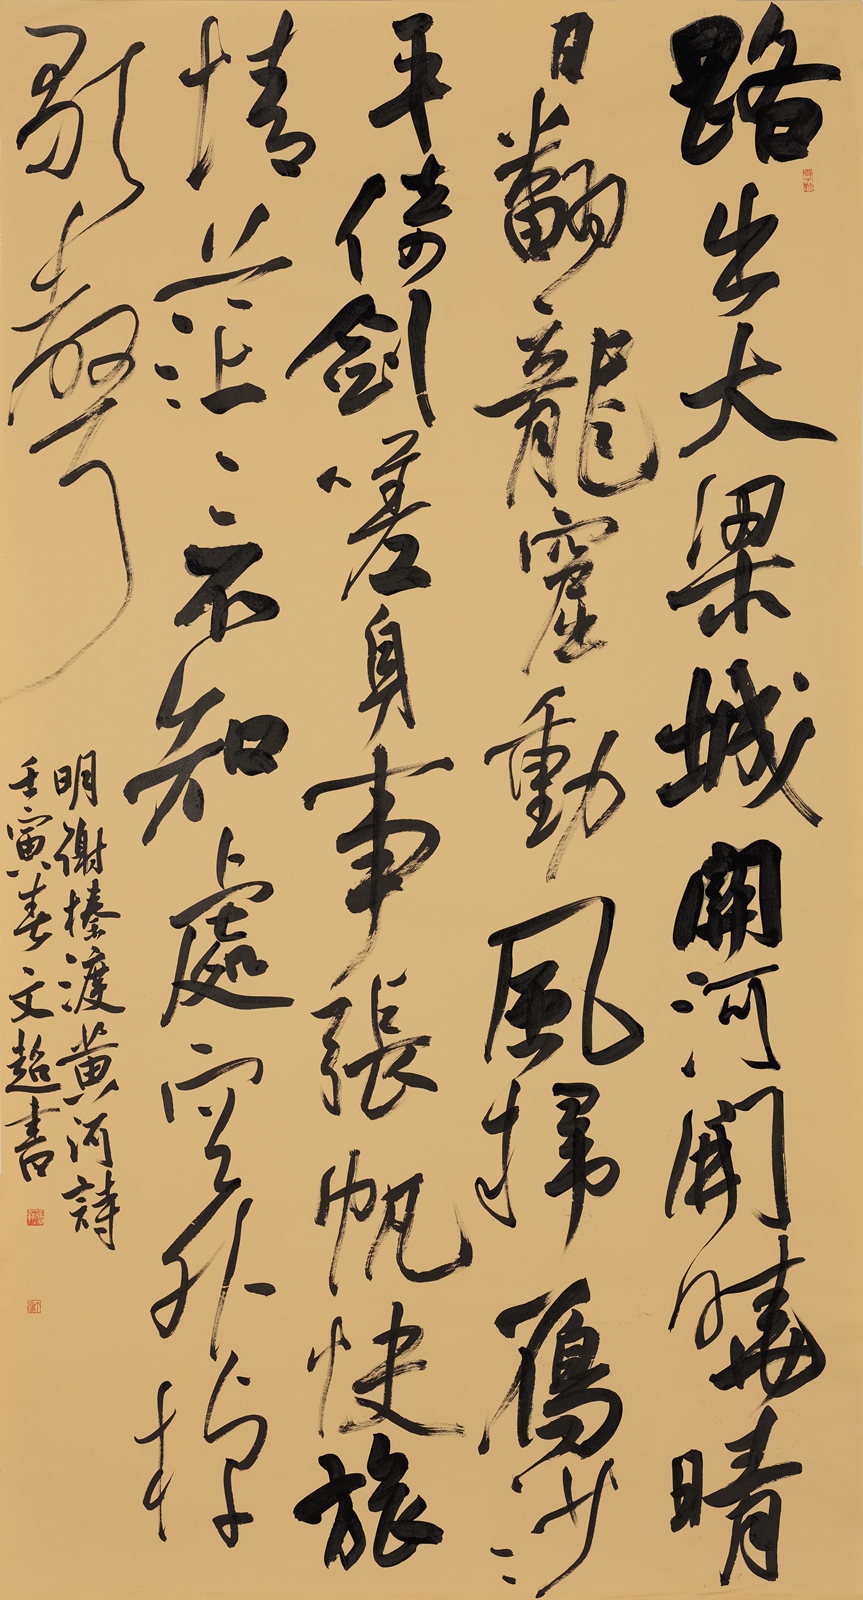 路出大梁城關河開曉晴
日翻龍窟動風掃鴈沙
平倚劍嗟身事張帆快旅
情茫〻不知處空外棹
歌聲
明謝榛渡黃河詩
壬寅春文超書